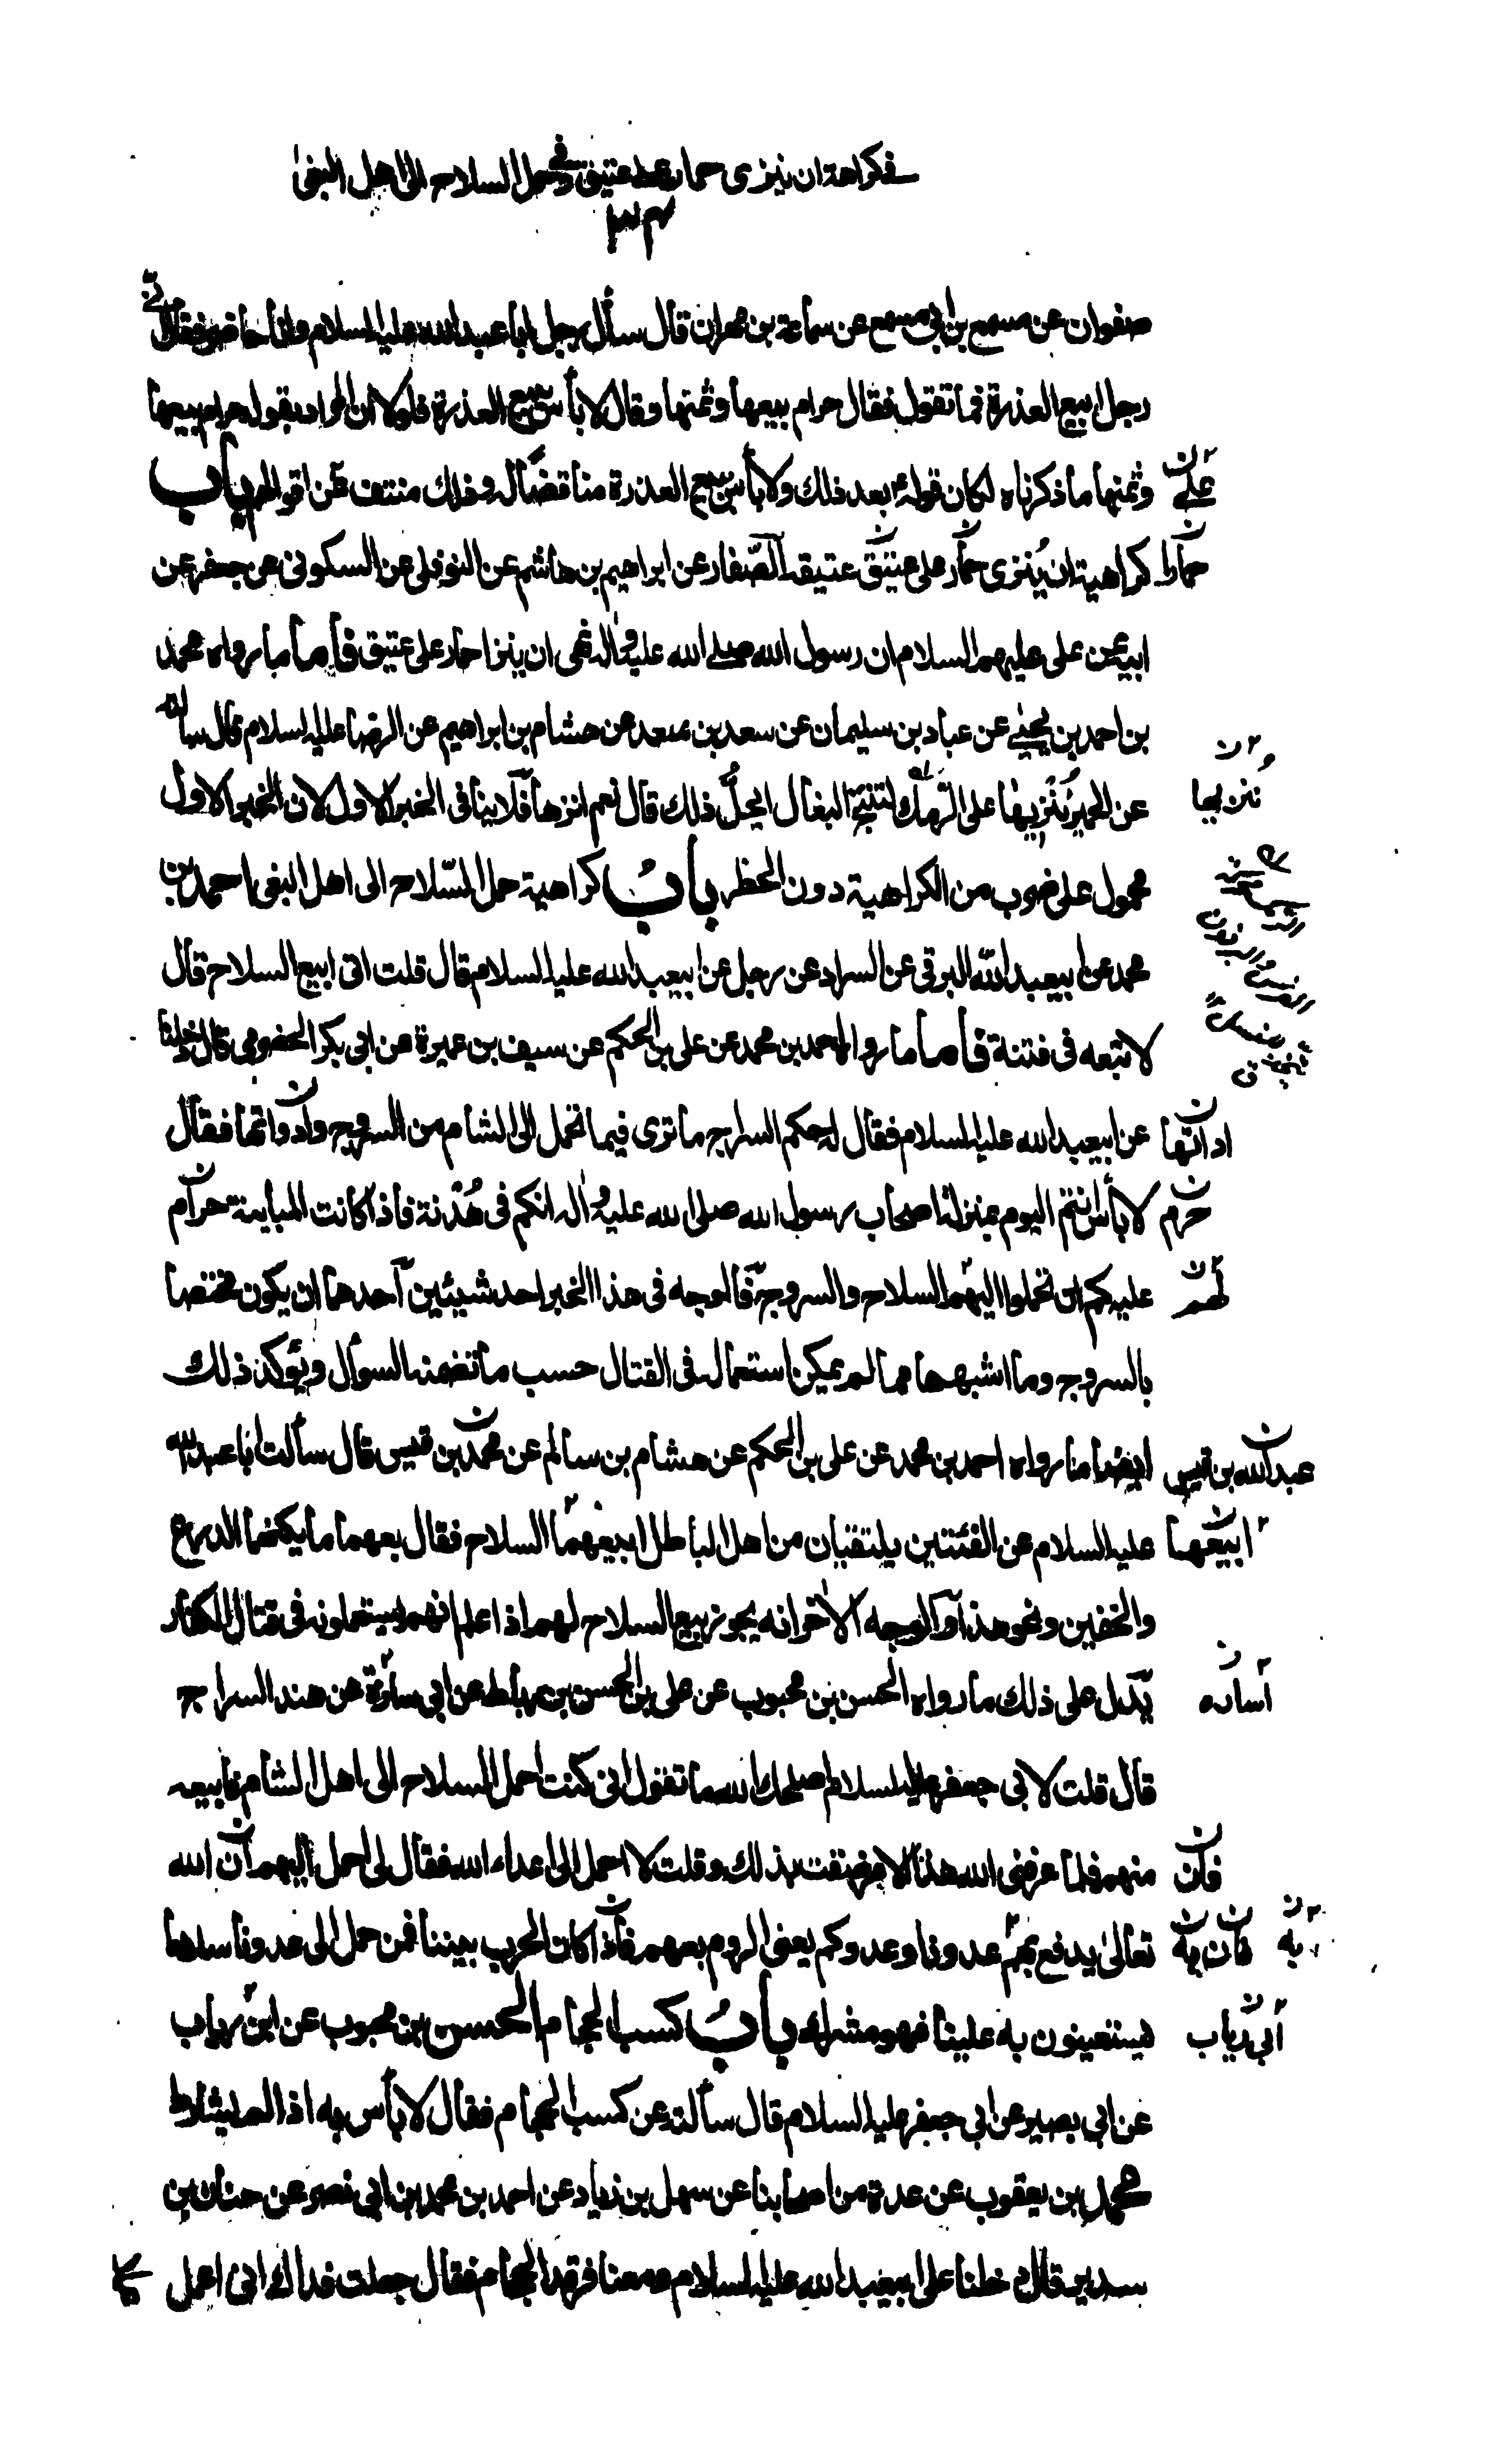 في كراهة ان ينزى حمار على عتيق وفي حمل السلاح الى اهل البغى
صفوان عن مسمع بن ابى مسمع عن سماعة بن مهران قال سأل رجل ابا عبد الله عليه السلام وانا حاضر فقال انى
رجل ابيع العذرة فما تقول فقال حرام بيعها وثمنها وقال لا بأس ببيع العذرة فلولا ان المراد بقوله حرام بيعها
وثمنها ما ذكرناه لكان قوله بعد ذلك ولا بأس ببيع العذرة مناقضا له وذلك منتف عن اقوالهم باب
على ن
كراهية ان ينزى حمار على عتيق عتيقه الصفار عن ابراهيم بن هاشم عن النوفلى عن السكونى عن جعفر عن
حمارا ن
ابيه عن على عليهم السلام ان رسول الله صلى الله عليه واله نهى ان ينزا حمار على عتيق فأما ما رواه محمد
بن احمد بن يحيى عن عباد بن سليمان عن سعد بن سعد عن هشام بن ابراهيم عن الرضا عليه السلام قال سألته
عن الحمير ننزيها على الرمك لتنتج البغال ايحل ذلك قال نعم انزها فلا ينافى الخبر الاول لان الخبر الاول
محمول على ضرب من الكراهية دون الحظر باب كراهية حمل السلاح الى اهل البغى احمد بن
محمد عن ابيعبد الله البرقى عن السراد عن رجل عن ابيعبد الله عليه السلام قال قلت انى ابيع السلاح قال
لا تبعه فى فتنة فأما ما رواه احمد بن محمد عن على بن الحكم عن سيف بن عميرة عن ابى بكر الحضرمى قال دخلنا
عن ابيعبد الله عليه السلام فقال له حكم السراج ما ترى فيما نحمل الى الشام من السروج وادواتها فقال
اداتها ن
لا بأس انتم اليوم بمنزلة اصحاب رسول الله صلى الله عليه واله انكم فى هدنة فاذا كانت المباينة حرام
حرم ن
عليكم ان تحملوا اليهم السلاح والسروج فالوجه فى هذا الخبر احد شيئين احدهما ان يكون مختصا
لهم ن
بالسروج وما اشبهها مما لم يمكن استعماله فى القتال حسب ما تضمنه السؤال ويؤكد ذلك
ايضا ما رواه احمد بن محمد عن على بن الحكم عن هشام بن سالم عن محمد بن قيس قال سألت ابا عبد الله
عبد الله بن قيس ن
عليه السلام عن الفئتين يلتقيان من اهل الباطل ابيعهما السلاح فقال بعهما ما يكنهما الدرع
ابيعها ن
والخفين ونحو هذا والوجه الاخر انه يجوز بيع السلاح لهم اذا علم انهم يستعملونه فى قتال الكفار
يدل على ذلك ما رواه الحسن بن محبوب عن على بن الحسن بن رباط عن ابى سارة عن هند السراج
اساره
قال قلت لابى جعفر عليه السلام اصلحك الله ما تقول انى كنت احمل السلاح الى اهل الشام فابيعه
منهم فلما عرفنى الله هذا الامر ضقت بذلك وقلت لا احمل الى اعداء الله فقال لى احمل اليهم ان الله
فان ن
تعالى يدفع بهم عدونا وعدوكم يعنى الروم بعهم فاذا كان الحرب بيننا فمن حمل الى عدونا سلاحا
فان ن به ن به ن
يستعينون به علينا فهو مشرك باب كسب الحجام الحسن بن محبوب عن ابن رياب
ابى رياب ن
عن ابى بصير عن ابى جعفر عليه السلام قال سألته عن كسب الحجام فقال لا بأس به اذا لم يشارط
محمد بن يعقوب عن عدة من اصحابنا عن سهل بن زياد عن احمد بن محمد بن ابى نصر عن حنان بن
سدير قال دخلنا على ابيعبد الله عليه السلام ومعنا فرقد الحجام فقال جعلت فداك انى اعمل